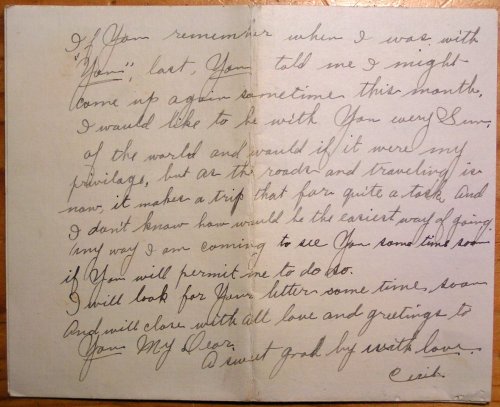 If You remember when I was with
"You", last, You told me I might
come up again sometime this month.
I would like to be with You every Sun.
of the world and would if it were my
privilage, but as the roads and traveling is
now, it makes a trip that far quite a task. And
I don't know how would be the easiest way of going.
my way I am coming to see You some time soon
if You will permit me to do so.
I will look for Your letter some time, soon
And will close with all love and greetings to
You My Dear.
A sweet good by with love.
Cecil.